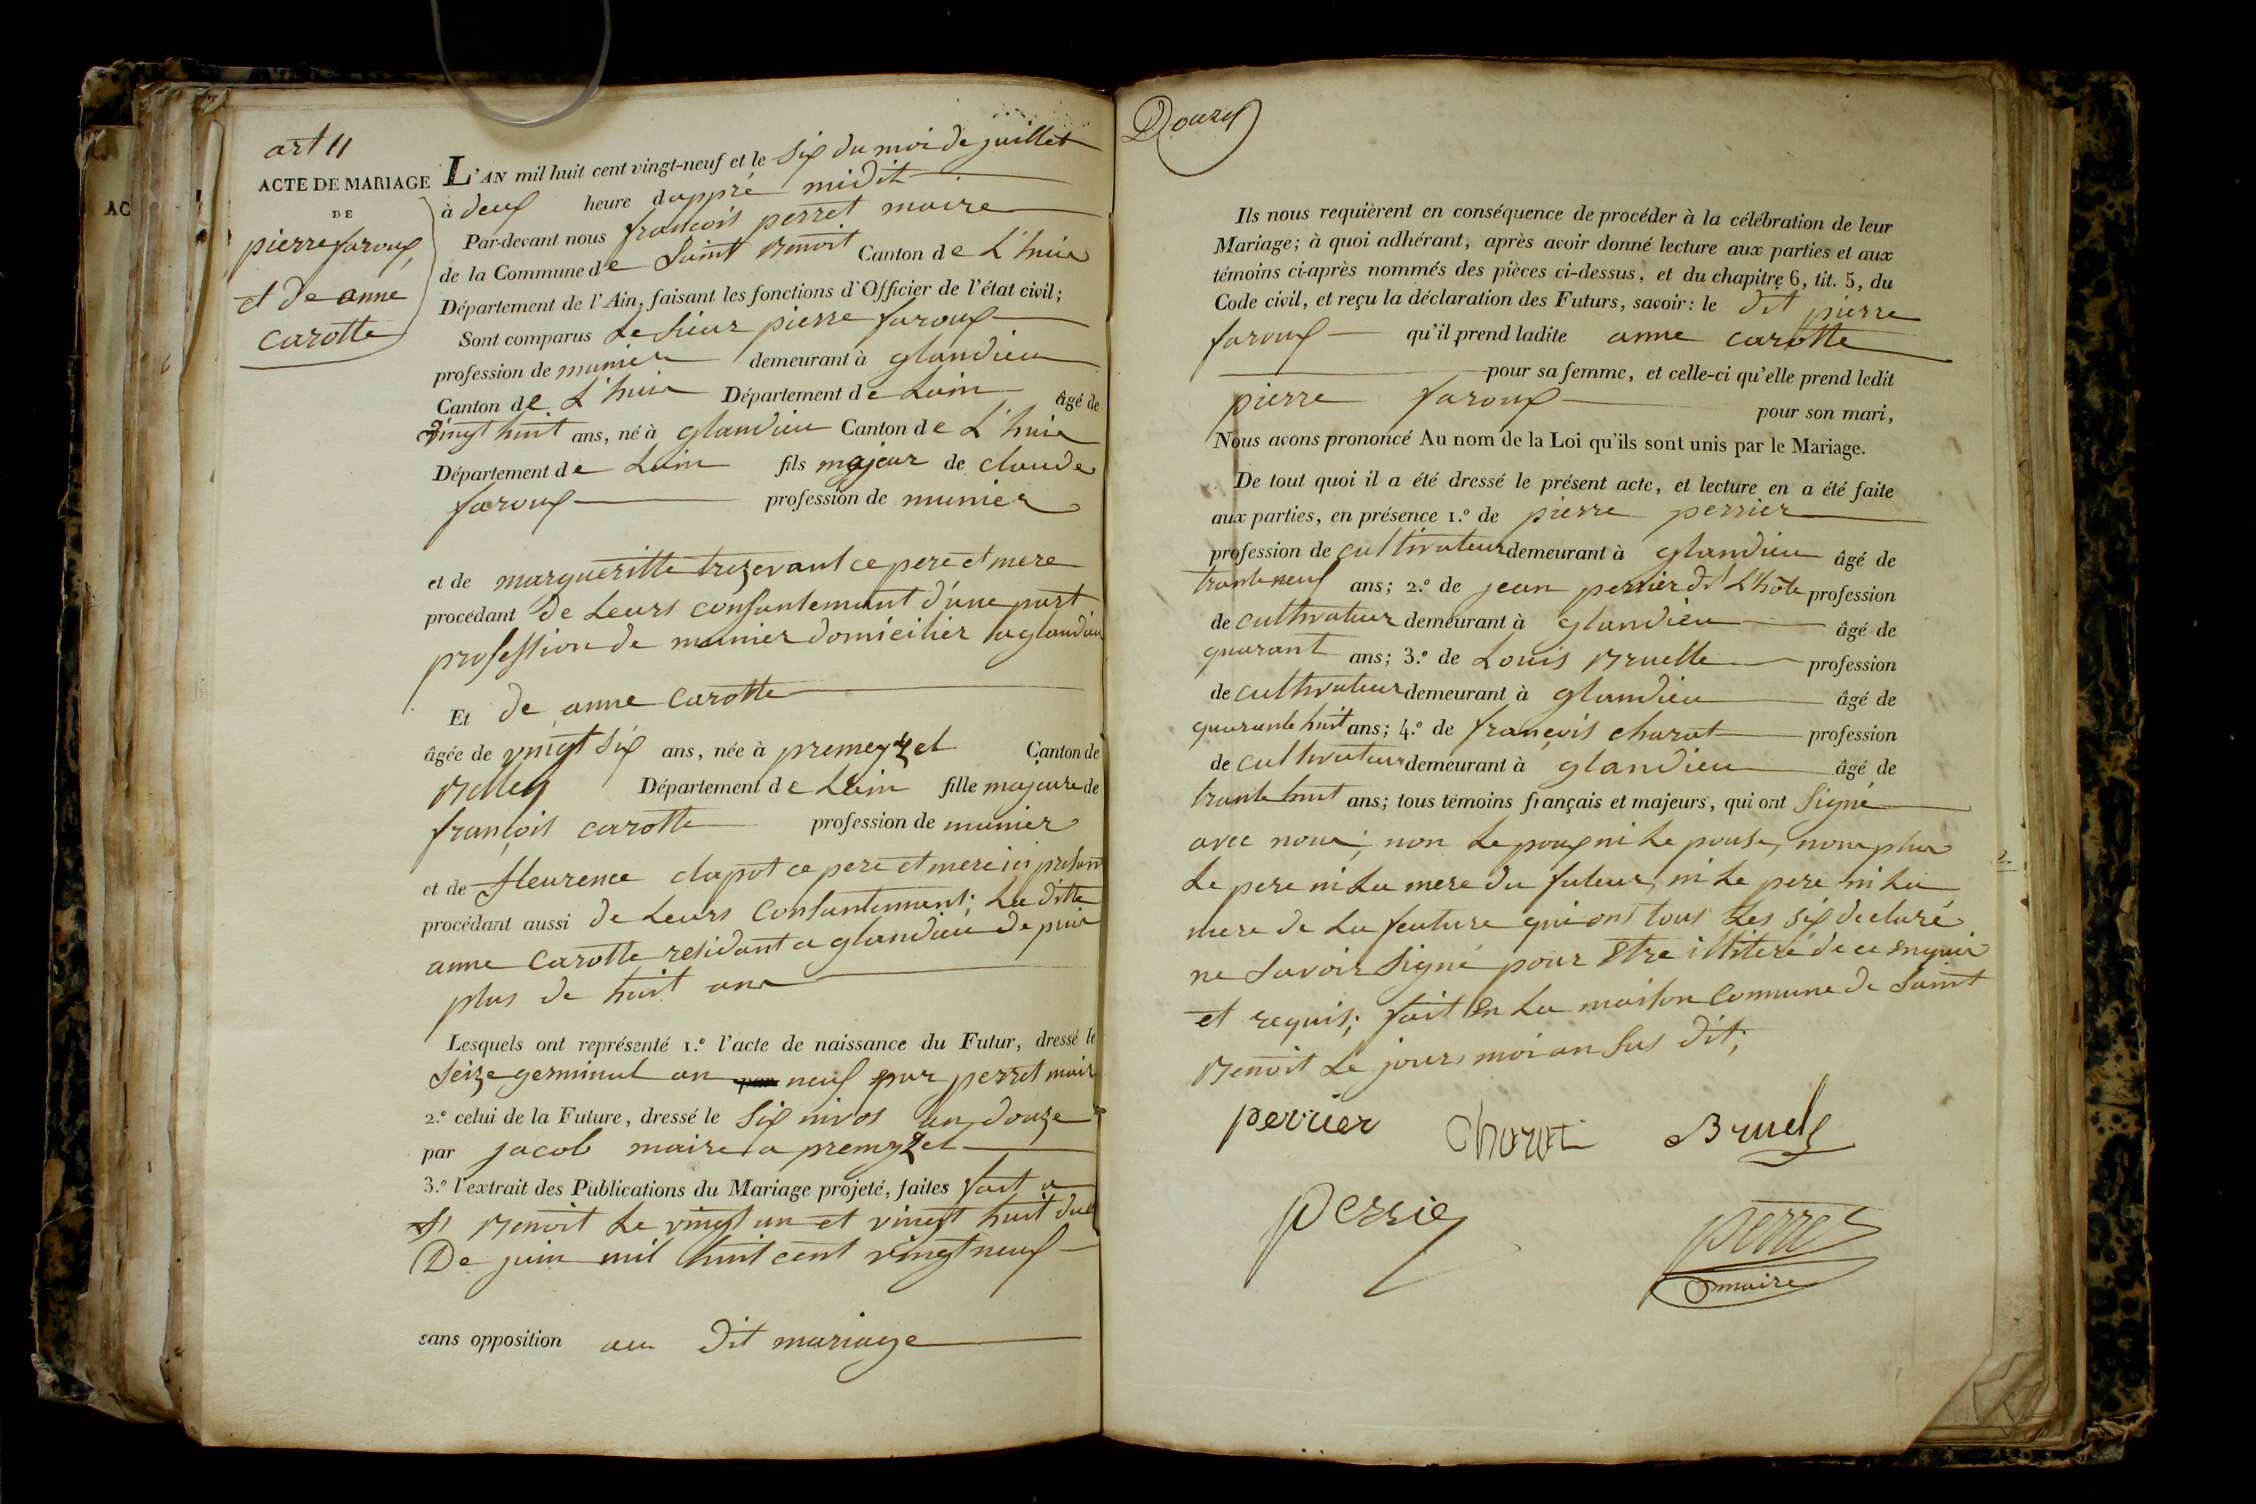 art 11
ACTE DE MARIAGE
DE
pierre faroux
et de anne
carotte
AC
L'AN mil huit cent vingt-neuf et le six du moi de juillet
à deux heure dappré midit
Par-devant nous francois perret maire
de la Commune de Saint Benoit Canton de L'huis
Département de l'Ain, faisant les fonctions d'Officier de l'état civil;
Sont comparus Le sieur pierre faroux
profession de munier demeurant à glandieu
Canton de L'huis Département de Lain âgé de
vingt huit ans, né à glandieu Canton de L'huis
Département de Lain fils majeur de claude
faroux profession de munier
et de margueritte trezevant ce pere et mere
procédant de Leurs consantemant d'une part
profession de munier domicilier a glandieu
Et de anne carotte
âgée de vingt six ans, née à premeyzel Canton de
Belley Département de Lain fille majeure de
françois carotte profession de munier
et de fleurence clapot ce pere et mere ici presant
procédant aussi de Leurs Consantemant; La ditte
anne Carotte residant a glandieu de puis
plus de huit ans
Lesquels ont représenté 1.° l'acte de naissance du Futur, dressé le
seize germinal an neuf par perret maire
2.° celui de la Future, dressé le six nivos an douze
par jacob maire a premyzel
3.° l'extrait des Publications du Mariage projeté, faites fait a
St Benoit Le vingt un et vingt huit du
De juin mil huit cent vingt neuf
sans opposition au dit mariage
Ils nous requièrent en conséquence de procéder à la célébration de leur
Mariage; à quoi adhérant, après avoir donné lecture aux parties et aux
témoins ci-après nommés des pièces ci-dessus, et du chapitre 6, tit. 5, du
Code civil, et reçu la déclaration des Futurs, savoir: le dit pierre
faroux qu'il prend ladite anne carotte
pour sa femme, et celle-ci qu'elle prend ledit
pierre faroux pour son mari,
Nous avons prononcé Au nom de la Loi qu'ils sont unis par le Mariage.
De tout quoi il a été dressé le présent acte, et lecture en a été faite
aux parties, en présence 1.° de pierre perrier
profession de cultivateur demeurant à glandieu âgé de
trante neuf ans; 2.° de jean perrier dit L'hôte profession
de cultivateur demeurant à glandieu âgé de
quarant ans; 3.° de Louis Bruelle profession
de cultivateur demeurant à glandieu âgé de
quarante huit ans; 4.° de françois charut profession
de cultivateur demeurant à glandieu âgé de
trante huit ans; tous témoins français et majeurs, qui ont signé
avec nous; non Le poux ni Le pouse, nonplus
Le pere ni La mere du futeur, ni Le pere ni La
mere de La feuture qui ont tous Les six declaré
ne savoir signé pour être illiteré de ce enquis
et requis; fait en La maison commune de Saint
Benoit Le jours moi an sus dit;
perrier Charut Bruel
perrier
perret
maire